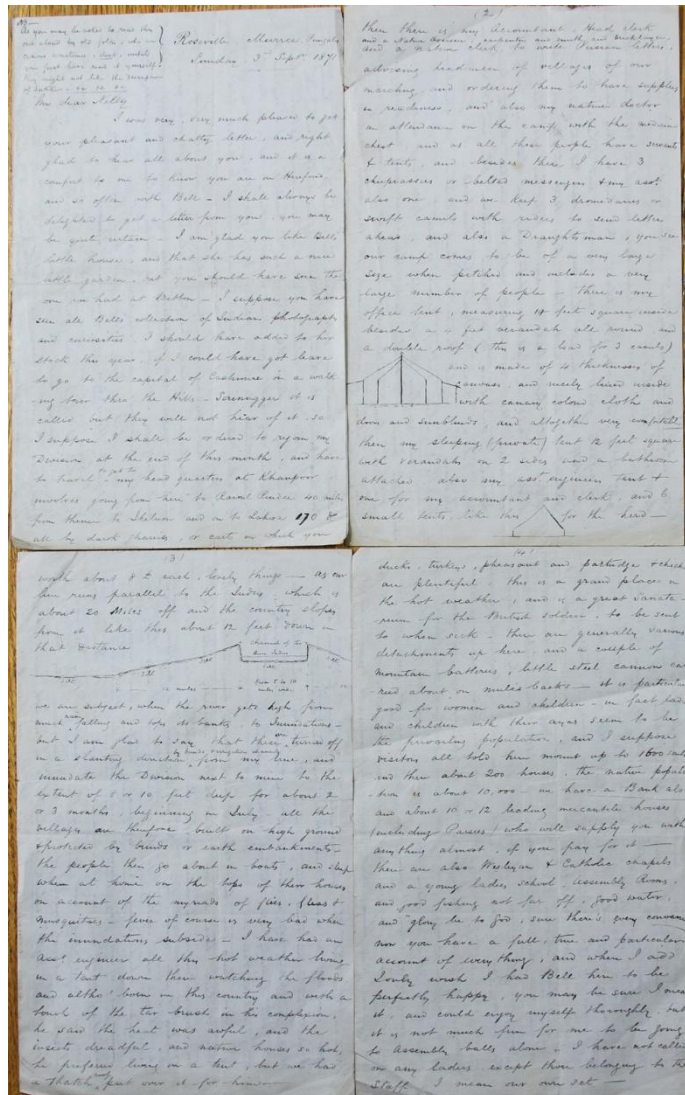 As you may be asked to read this
Roseville, Murree Punjab
Sunday 3rd Septr 1871
My dear Nelly
I was very, very much pleased to get
your pleasant and chatty letter, and right
glad to hear all about you, and it is a
comfort to me to know you are in
and so often with Bell – I shall always be
delighted to get a letter from you, you may
be quite certain – I am glad you like Bell's
little house, and that she has such a nice
little garden, but you should have seen the
one we had at – I suppose you have
seen all Bells collection of Indian photographs
and curiosities I should have added to her
stock this year, if I could have got leave
to go to the capital of Cashmere in a walk
-ing tour thro the Hills – it is
called but they will not hear of it, so
I suppose I shall be ordered to rejoin my
Division at the end of this month, and have
to travel to get to my head quarters at Khanpoor
involves going from here to Rawul Pindee 40 miles
from thence to Jhelum and on to Lahore 170 &
all by dawk gharries, or carts in which you
(2)
then there is my Accountant, Head clerk
and a native clerk to write Persian letters,
advising head men of villages of our
marching and ordering them to have supplies
in readiness, and also my native doctor
in attendance on the camp with the medicine
chest and as all these people have servants
& tents, and besides these I have 3
chuprassies or belted messengers & my asst
also one, and we keep 3 dromedaries or
swift camels with riders to send letters
ahead, and also a Draughtsman, you see
our camp comes to be of a very large
size when pitched and includes a very
large number of people – there is my
office tent, measuring 14 feet square inside
besides a 4 feet verandah all round and
a double roof (this is a load for 3 camels)
and is made of 4 thicknesses of
canvas, and nicely lined inside
with canary colored cloth and
doors and sunblinds, and altogether very comfortable
then my sleeping (private) tent 12 feet square
with verandahs on 2 sides and a bathroom
attached also my asst engineers tent &
one for my accountant and clerk, and 6
small tents, like this for the head –
(3)
worth about £2 each, lovely things – as our
line runs parallel to the Indus, which is
about 20 Miles off and the country slopes
from it like this about 12 feet down in
that distance
we are subject, when the river gets high from
snow melting and tops its banks, to Inundations –
but I am glad to say that these are turned off
in a slanting direction from my line, and
inundate the Division next to mine to the
extent of 8 or 10 feet deep for about 2
or 3 months, beginning in July – all the
villages are therefore built on high ground
& protected by bunds or earth embankments –
the people then go about in boats, and sleep
when at home on the tops of their houses
on account of the myriads of flies, fleas &
musquitoes – fever of course is very bad when
the inundations subside – I have had an
Asst engineer all this hot weather living
in a tent down there watching the floods
and altho' born in this country and with a
touch of the tar brush in his complexion,
he said the heat was awful, and the
insects dreadful, and native houses so hot,
he preferred living in a tent, but we had
a thatch roof put over it for him –
(4)
ducks, turkeys, pheasant and partridge & chicken
are plentiful, this is a grand place in
the hot weather, and is a great Sanata-
rium for the British soldier, to be sent
to when sick – there are generally various
detachments up here, and a couple of
mountain batteries, little steel cannons car
ried about on mules backs – it is particularly
good for women and children – in fact ladies
and children with their ayas seem to be
the prevailing population, and I suppose
visitors all told here mount up to 1600 souls
and then about 200 houses, the native popula
-tion is about 10,000 – we have a Bank also
and about 10 or 12 leading mercantile houses
(including Parsees) who will supply you with
anything almost, if you pay for it –
there are also Wesleyan & Catholic chapels
and a young ladies school, Assembly Rooms,
and good fishing not far off, good water,
and "glory be to god, sure there's every convenience
now you have a full, true and particular
account of everything, and when I add
I only wish I had Bell here to be
perfectly happy, you may be sure I mean
it, and could enjoy myself thoroughly, but
it is not much fun for me to be going
to Assembly balls alone, I have not called
on any ladies except those belonging to the
Staff, I mean our own set –